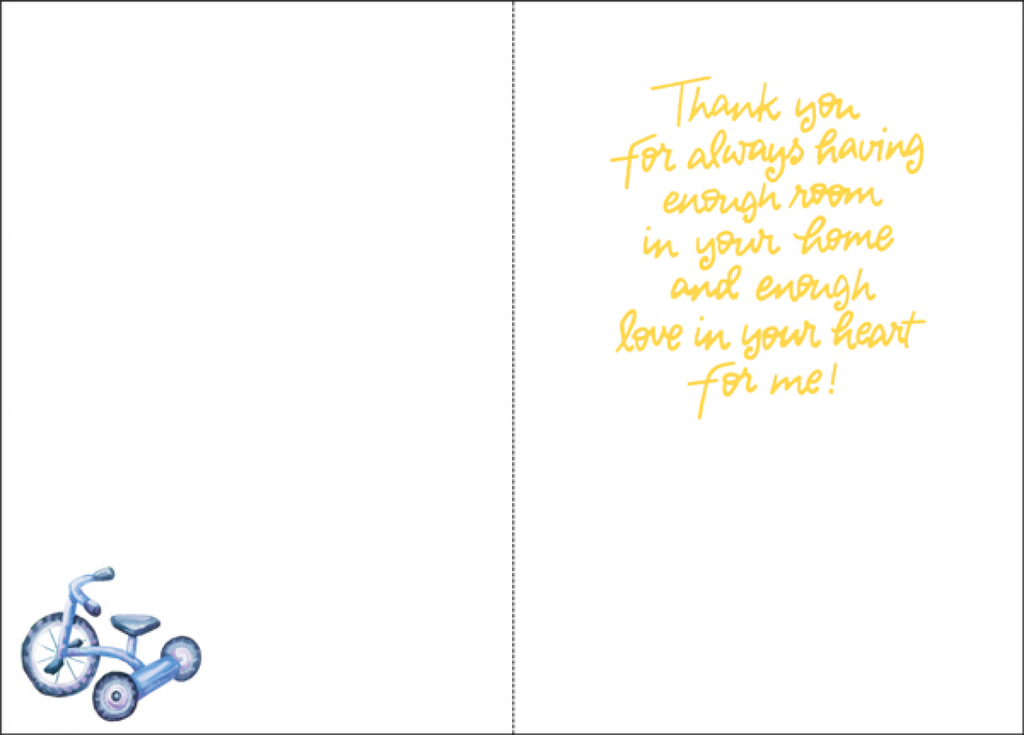 Thank you
for always having
enough room
in your home
and enough
love in your heart
for me!